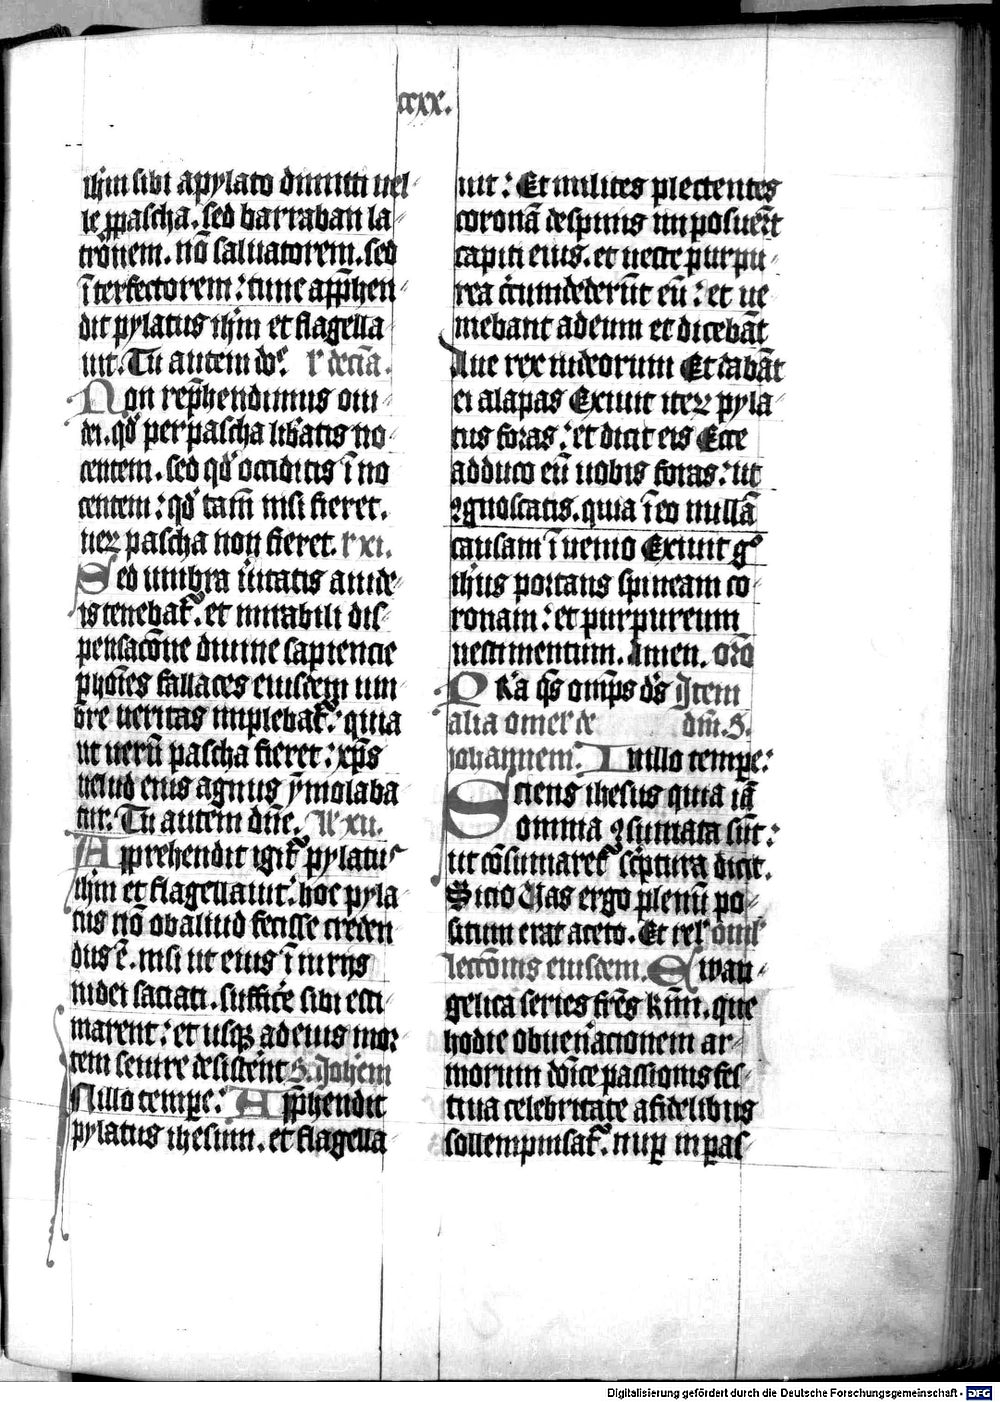 ccxx.
ihm sibi a pylato dimitti uel
le ꝑ pascha. sed barraban la
tronem. nō saluatorem. sed
ītẽrfectorem: tunc app̄hen
dit pylatus ihm et flagella
uit. Tu autem dn̄e. decīa.
Non rep̄hendimus o iu
dei. qd̓ per pascha libatis no
centem. sed qd̓ occiditis īno
centem: qd̓ tam̄ nisi fieret.
uerꝝ pascha non fieret. xi.
Sed umbra ūitatis a iude
is tenebat̄. et mirabili dis
pensacōne diuine sapiencie
ꝑ hoīes fallaces eiusdem um
bre ueritas implebat̄. quia
ut uerū pascha fieret: xp̄s
uelud eius agnus ymolaba
tur. Tu autem dn̄e. xii.
Apprehendit igit̄ pylatus
ihm et flagellauit. hoc pyla
tus nō ob aliud fecisse creden
dus ē. nisi ut eius īiurijs
iudei saciati. sufficẽ sibi esti
marent: et usqꝫ ad eius mor
tem seuire desistẽnt S. Johem
In illo tempe: App̄hendit
pylatus ihesum. et flagella
uit: Et milites plectentes
coronā de spinis imposuer̄t
capiti eius. et ueste purpu
rea c̓cumdeder̄ut eū: et ue
niebant ad eum et dicebāt
Aue rex iudeorum Et dabāt
ei alapas Exiuit iterꝝ pyla
tus foras: et dicit eis Ecce
adduco eū uobis foras: ut
ꝯgnoscatis. quia ī eo nullā
causam īuenio Exiuit gͦ
ihūs portans spineam co
ronam: et purpureum
uestimentum. Amen. oro
P̄sta q̄s omp̄s d̄s Item
alia omel de dm̄. S.
Johannem. In illo tempe:
Sciens ihesus quia iā
omnia ꝯsumata sūt:
ut cōsumaret̄ sc̓ptura dicit.
Sicio Uas ergo plenū po
situm erat aceto. Et rel̓ omel̓
leccōnis eiusdem. Ewan
gelica series fr̄es k̄mi. que
hodie ob ueneracionem ar
morum dn̄ice passionis fes
tiua celebritate a fidelibus
sollempnisat̄. nuꝑ in pas
Digitalisierung gefördert durch die Deutsche Forschungsgemeinschaft - DFG